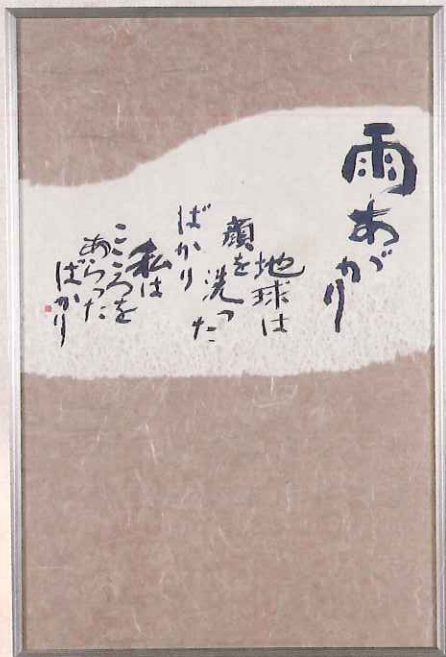 雨あがり
地球は
顔を洗った
ばかり
私は
こころを
あらった
ばかり